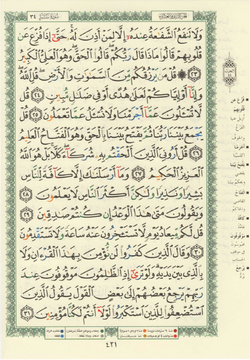 وَلَا تَنفَعُ ٱلشَّفَـٰعَةُ عِندَهُۥٓ إِلَّا لِمَنْ أَذِنَ لَهُۥ ۚ حَتَّىٰٓ إِذَا فُزِّعَ عَن
قُلُوبِهِمْ قَالُوا۟ مَاذَا قَالَ رَبُّكُمْ ۖ قَالُوا۟ ٱلْحَقَّ ۖ وَهُوَ ٱلْعَلِىُّ ٱلْكَبِيرُ
﴿٢٣﴾ ۞ قُلْ مَن يَرْزُقُكُم مِّنَ ٱلسَّمَـٰوَٰتِ وَٱلْأَرْضِ ۖ قُلِ ٱللَّهُ ۖ
وَإِنَّآ أَوْ إِيَّاكُمْ لَعَلَىٰ هُدًى أَوْ فِى ضَلَـٰلٍ مُّبِينٍ ﴿٢٤﴾ قُل
لَّا تُسْـَٔلُونَ عَمَّآ أَجْرَمْنَا وَلَا نُسْـَٔلُ عَمَّا تَعْمَلُونَ ﴿٢٥﴾ قُلْ
يَجْمَعُ بَيْنَنَا رَبُّنَا ثُمَّ يَفْتَحُ بَيْنَنَا بِٱلْحَقِّ وَهُوَ ٱلْفَتَّاحُ ٱلْعَلِيمُ
﴿٢٦﴾ قُلْ أَرُونِىَ ٱلَّذِينَ أَلْحَقْتُم بِهِۦ شُرَكَآءَ ۖ كَلَّا ۚ بَلْ هُوَ ٱللَّهُ
ٱلْعَزِيزُ ٱلْحَكِيمُ ﴿٢٧﴾ وَمَآ أَرْسَلْنَـٰكَ إِلَّا كَآفَّةً لِّلنَّاسِ
بَشِيرًا وَنَذِيرًا وَلَـٰكِنَّ أَكْثَرَ ٱلنَّاسِ لَا يَعْلَمُونَ ﴿٢٨﴾
وَيَقُولُونَ مَتَىٰ هَـٰذَا ٱلْوَعْدُ إِن كُنتُمْ صَـٰدِقِينَ ﴿٢٩﴾
قُل لَّكُم مِّيعَادُ يَوْمٍ لَّا تَسْتَـْٔخِرُونَ عَنْهُ سَاعَةً وَلَا تَسْتَقْدِمُونَ
﴿٣٠﴾ وَقَالَ ٱلَّذِينَ كَفَرُوا۟ لَن نُّؤْمِنَ بِهَـٰذَا ٱلْقُرْءَانِ وَلَا
بِٱلَّذِى بَيْنَ يَدَيْهِ ۗ وَلَوْ تَرَىٰٓ إِذِ ٱلظَّـٰلِمُونَ مَوْقُوفُونَ عِندَ
رَبِّهِمْ يَرْجِعُ بَعْضُهُمْ إِلَىٰ بَعْضٍ ٱلْقَوْلَ يَقُولُ ٱلَّذِينَ
ٱسْتُضْعِفُوا۟ لِلَّذِينَ ٱسْتَكْبَرُوا۟ لَوْلَآ أَنتُمْ لَكُنَّا مُؤْمِنِينَ ﴿٣١﴾
٤٣١